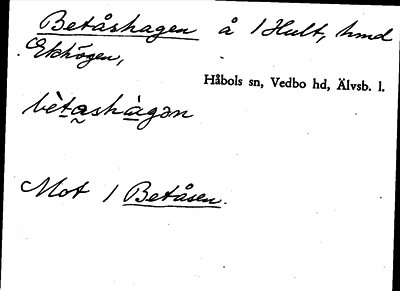 Betåshagen å 1 Hult, hmd
Ekhögen,
Håbols sn, Vedbo hd, Älvsb. l.
bètas̀hàgən
Mot 1 Betåsen.